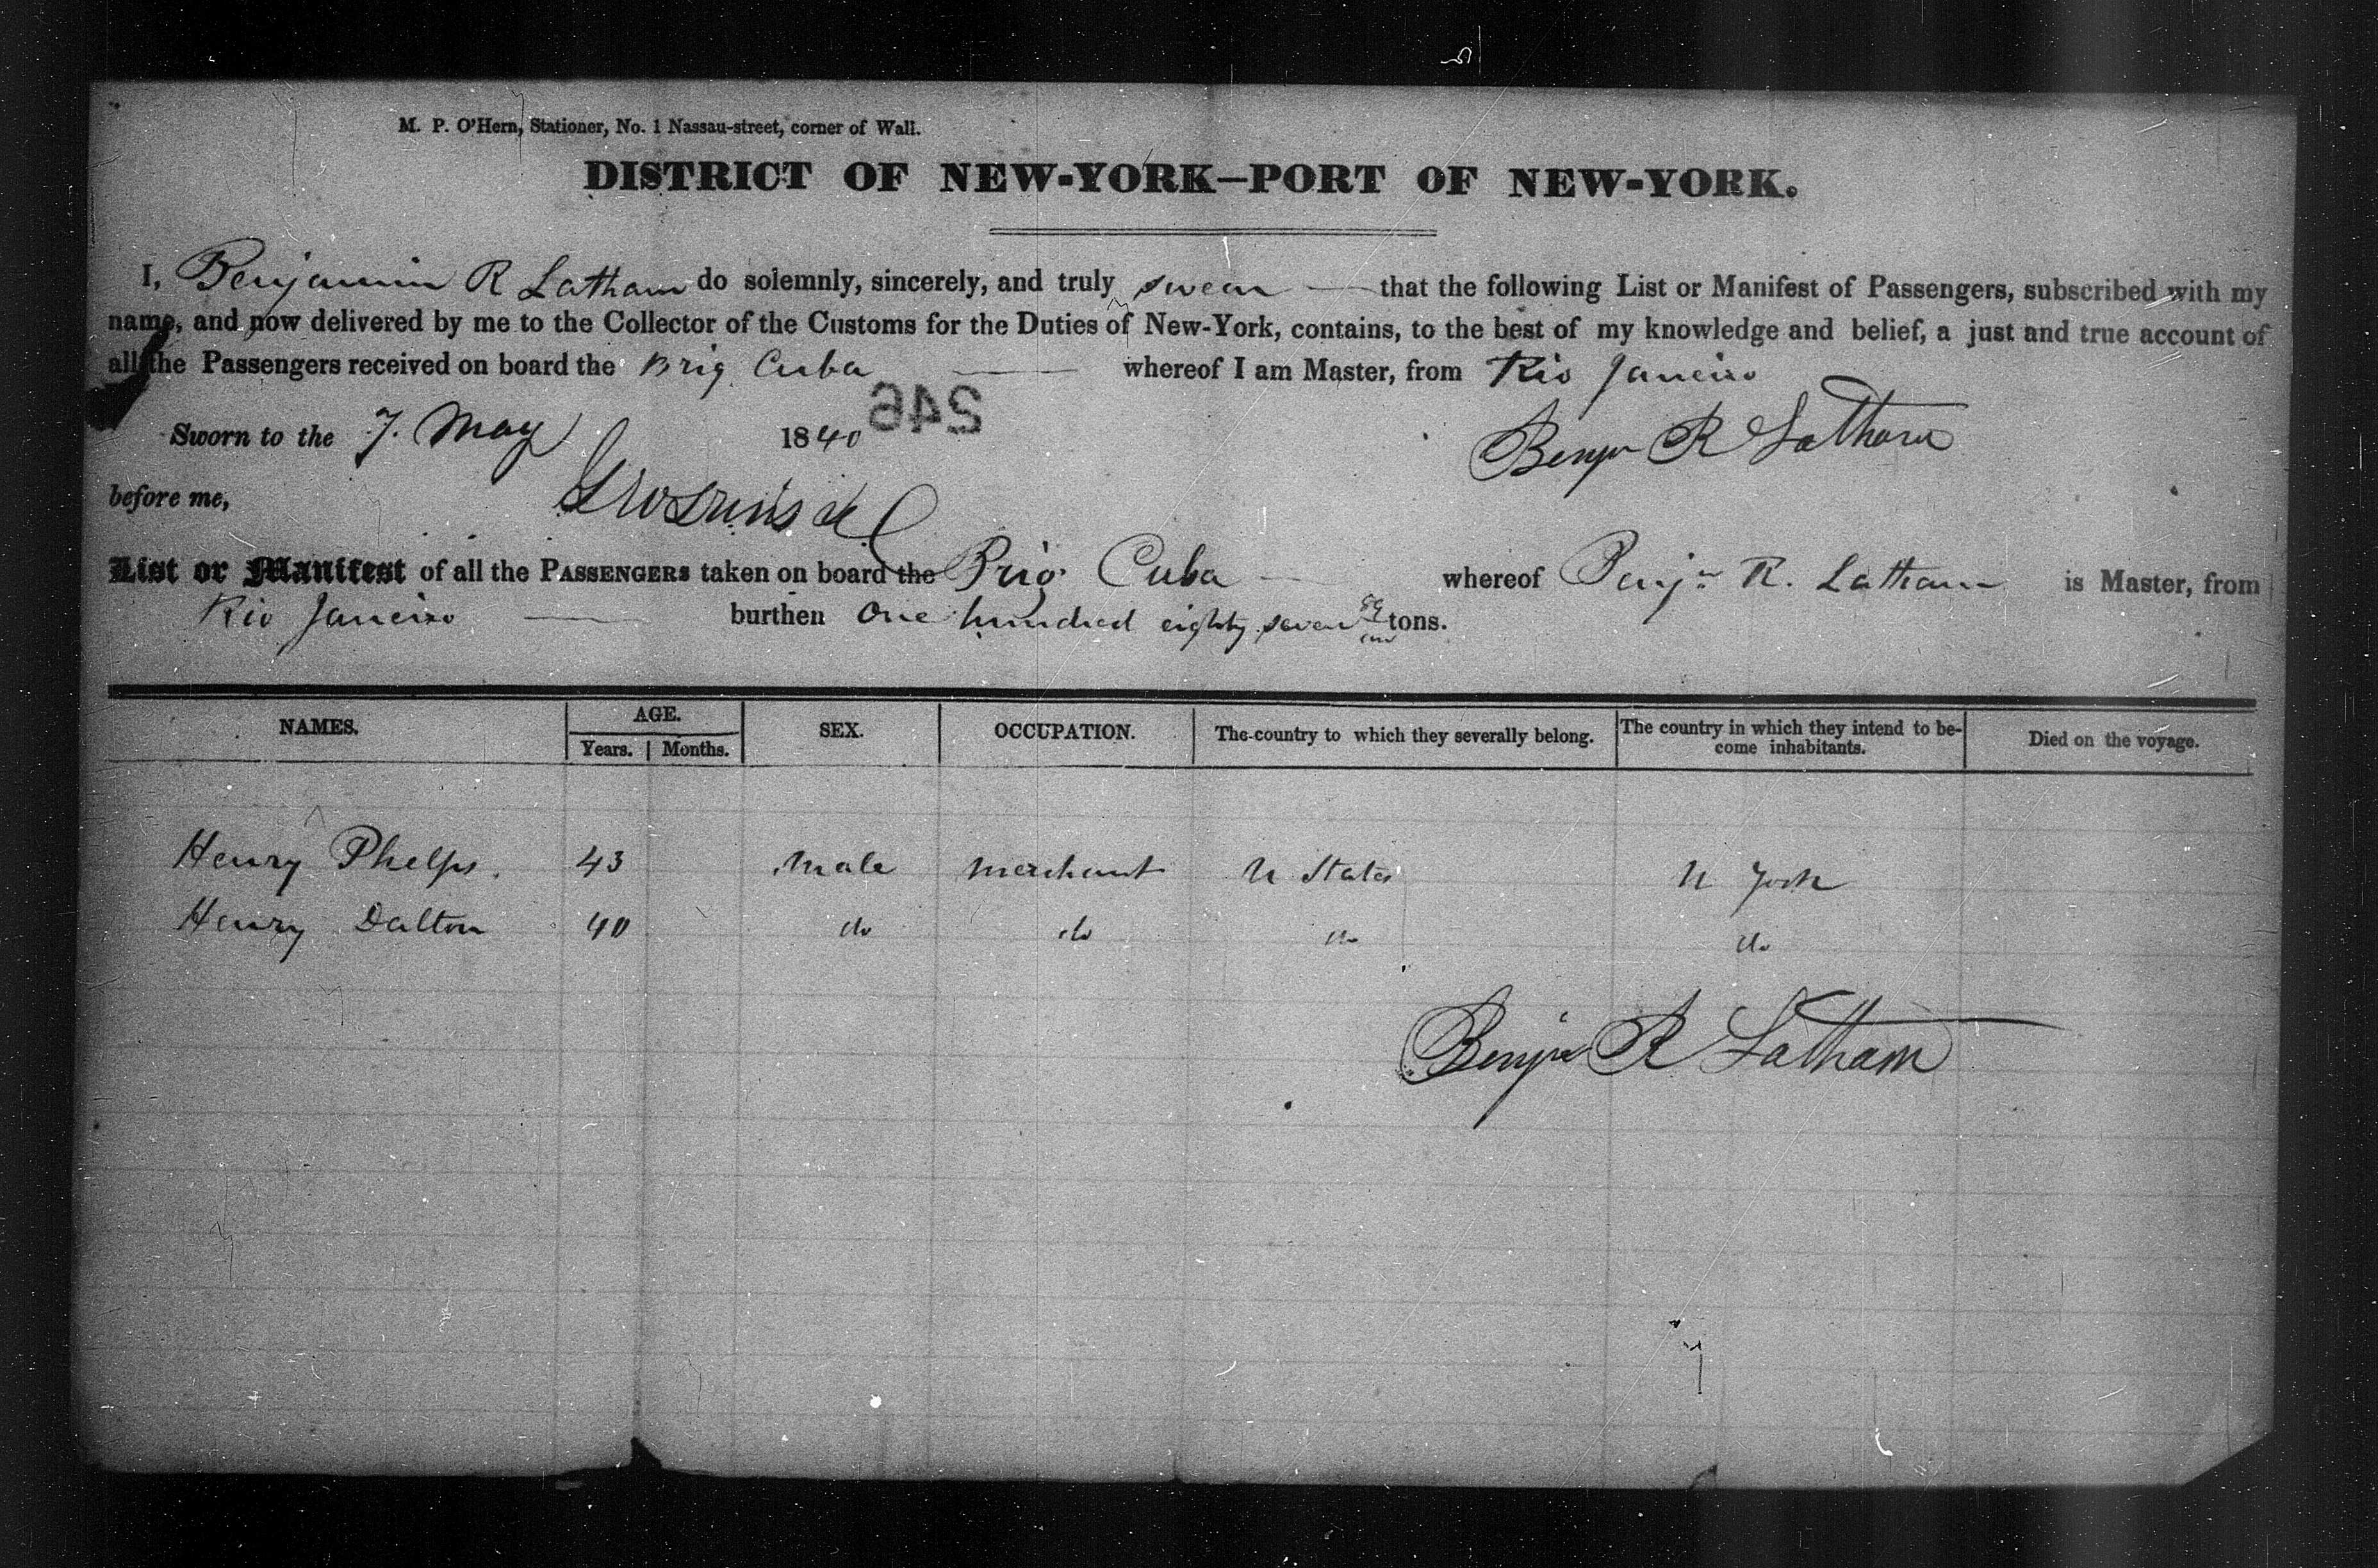 M. P. O'Hern, Stationer, No. 1 Nassau-street, corner of Wall.
DISTRICT OF NEW-YORK—PORT OF NEW-YORK.
I, Benjamin R Latham do solemnly, sincerely, and truly swear that the following List or Manifest of Passengers, subscribed with my
name, and now delivered by me to the Collector of the Customs for the Duties of New-York, contains, to the best of my knowledge and belief, a just and true account of
all the Passengers received on board the Brig Cuba whereof I am Master, from Rio Janeiro
246
Sworn to the 7. May 1840 Benjn R Latham
before me,
List or Manifest of all the PASSENGERS taken on board the Brig Cuba whereof Benjn R. Latham is Master, from
Rio Janeiro burthen One hundred eighty seven tons.
NAMES. AGE. SEX. OCCUPATION. The country to which they severally belong. The country in which they intend to be-come inhabitants. Died on the voyage.
Years. Months.
Henry Phelps. 43 Male Merchant U States N York
Henry Dalton 40 do do do do
Benjn R Latham